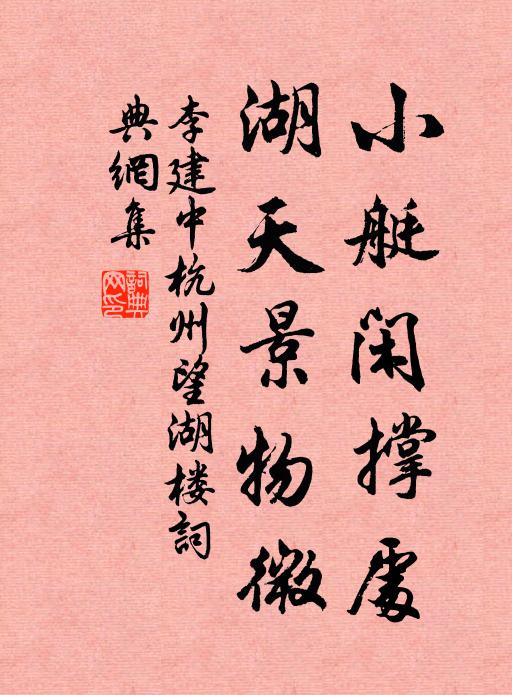 小艇闲撑處
湖天景物微
李建中杭州望湖楼詞
典網集
詞典网印